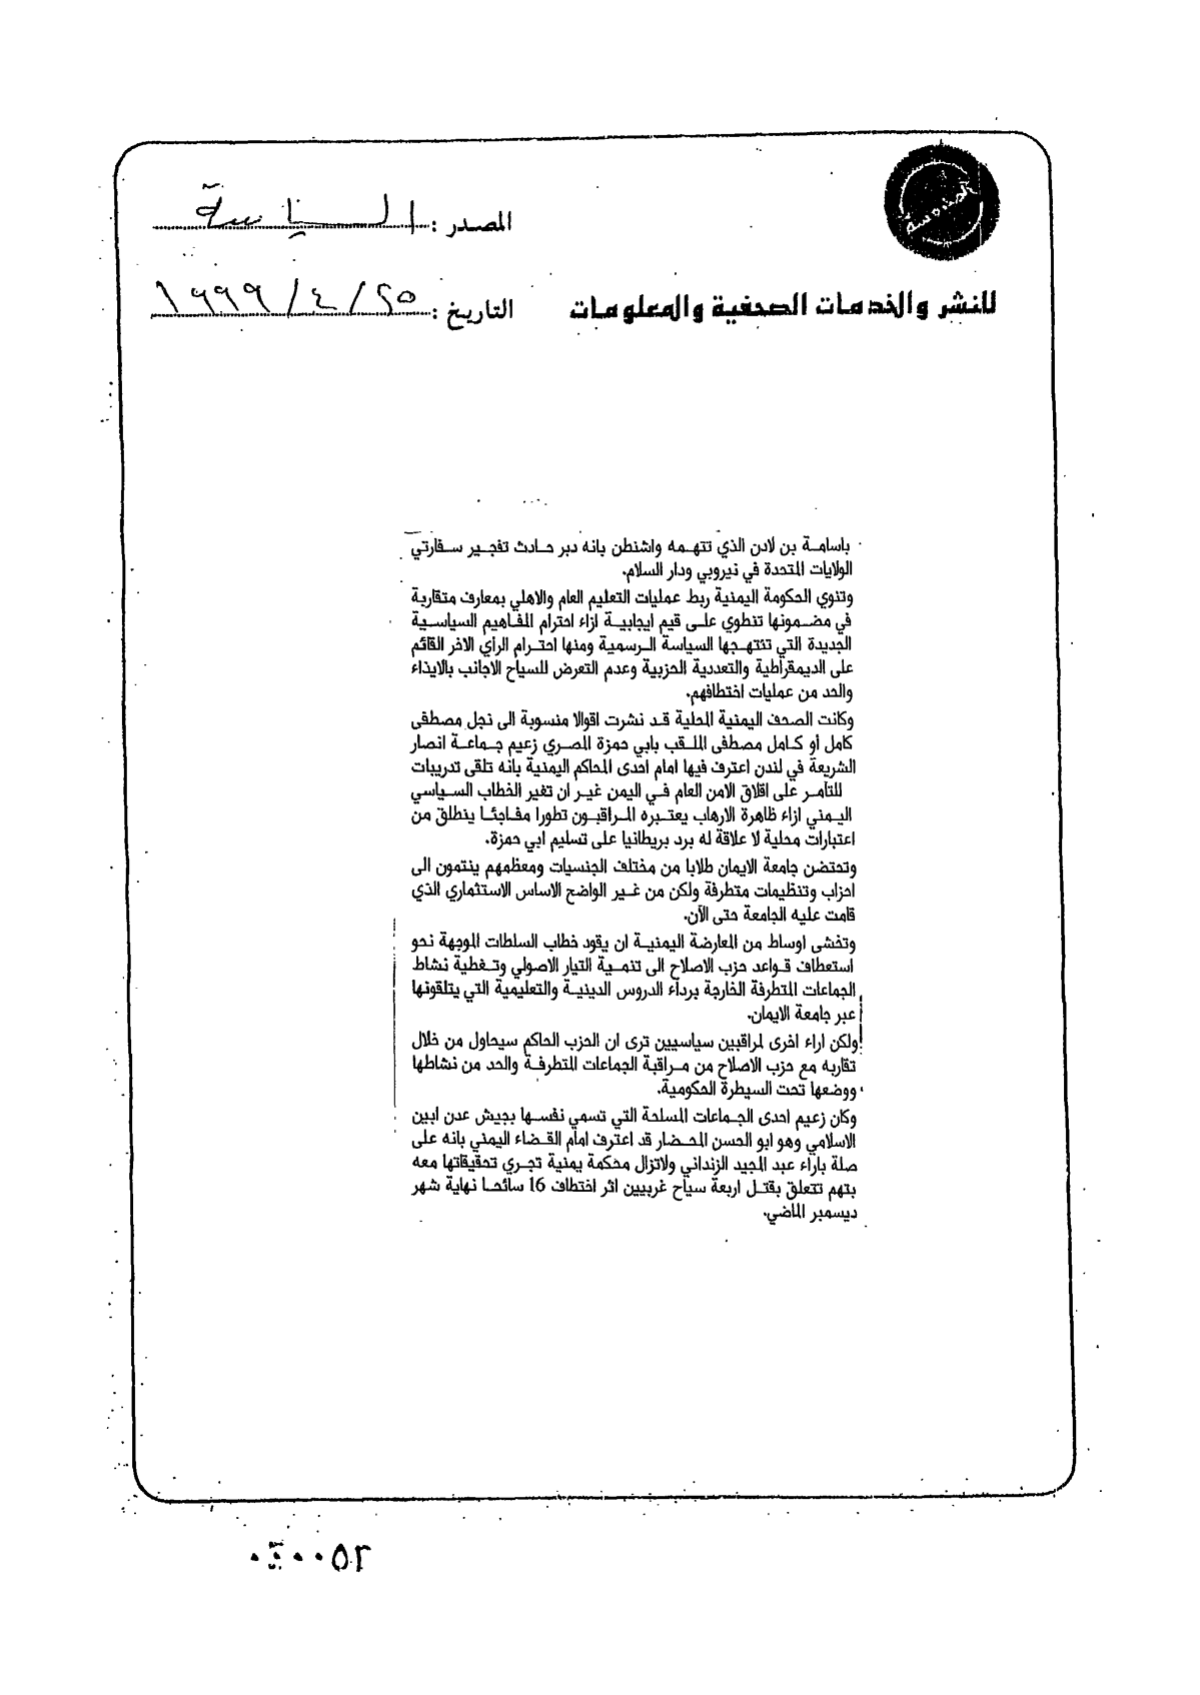 المصدر : السياسة
للنشر والخدمات الصحفية والمعلومات
التاريخ : ٢٥ / ٤ / ١٩٩٩
باسامة بن لادن الذي تتهمه واشنطن بانه دبر حادث تفجير سفارتي
الولايات المتحدة في نيروبي ودار السلام.
وتنوي الحكومة اليمنية ربط عمليات التعليم العام والاهلي بمعارف متقاربة
في مضمونها تنطوي على قيم ايجابية ازاء احترام المفاهيم السياسية
الجديدة التي تنتهجها السياسة الرسمية ومنها احترام الرأي الاخر القائم
على الديمقراطية والتعددية الحزبية وعدم التعرض للسياح الاجانب بالايذاء
والحد من عمليات اختطافهم.
وكانت الصحف اليمنية المحلية قد نشرت اقوالا منسوبة الى نجل مصطفى
كامل أو كامل مصطفى الملقب بابي حمزة المصري زعيم جماعة انصار
الشريعة في لندن اعترف فيها امام احدى المحاكم اليمنية بانه تلقى تدريبات
للتآمر على اقلاق الامن العام في اليمن غير ان تغير الخطاب السياسي
اليمني ازاء ظاهرة الارهاب يعتبره المراقبون تطورا مفاجئا ينطلق من
اعتبارات محلية لا علاقة له برد بريطانيا على تسليم ابي حمزة.
وتحتضن جامعة الايمان طلابا من مختلف الجنسيات ومعظمهم ينتمون الى
احزاب وتنظيمات متطرفة ولكن من غير الواضح الاساس الاستثماري الذي
قامت عليه الجامعة حتى الآن.
وتخشى اوساط من المعارضة اليمنية ان يقود خطاب السلطات الموجهة نحو
استعطاف قواعد حزب الاصلاح الى تنمية التيار الاصولي وتغطية نشاط
الجماعات المتطرفة الخارجة برداء الدروس الدينية والتعليمية التي يتلقونها
عبر جامعة الايمان.
ولكن اراء اخرى لمراقبين سياسيين ترى ان الحزب الحاكم سيحاول من خلال
تقاربه مع حزب الاصلاح من مراقبة الجماعات المتطرفة والحد من نشاطها
ووضعها تحت السيطرة الحكومية.
وكان زعيم احدى الجماعات المسلحة التي تسمي نفسها بجيش عدن ابين
الاسلامي وهو ابو الحسن المحضار قد اعترف امام القضاء اليمني بانه على
صلة باراء عبد المجيد الزنداني ولاتزال محكمة يمنية تجري تحقيقاتها معه
بتهم تتعلق بقتل اربعة سياح غربيين اثر اختطاف 16 سائحا نهاية شهر
ديسمبر الماضي.